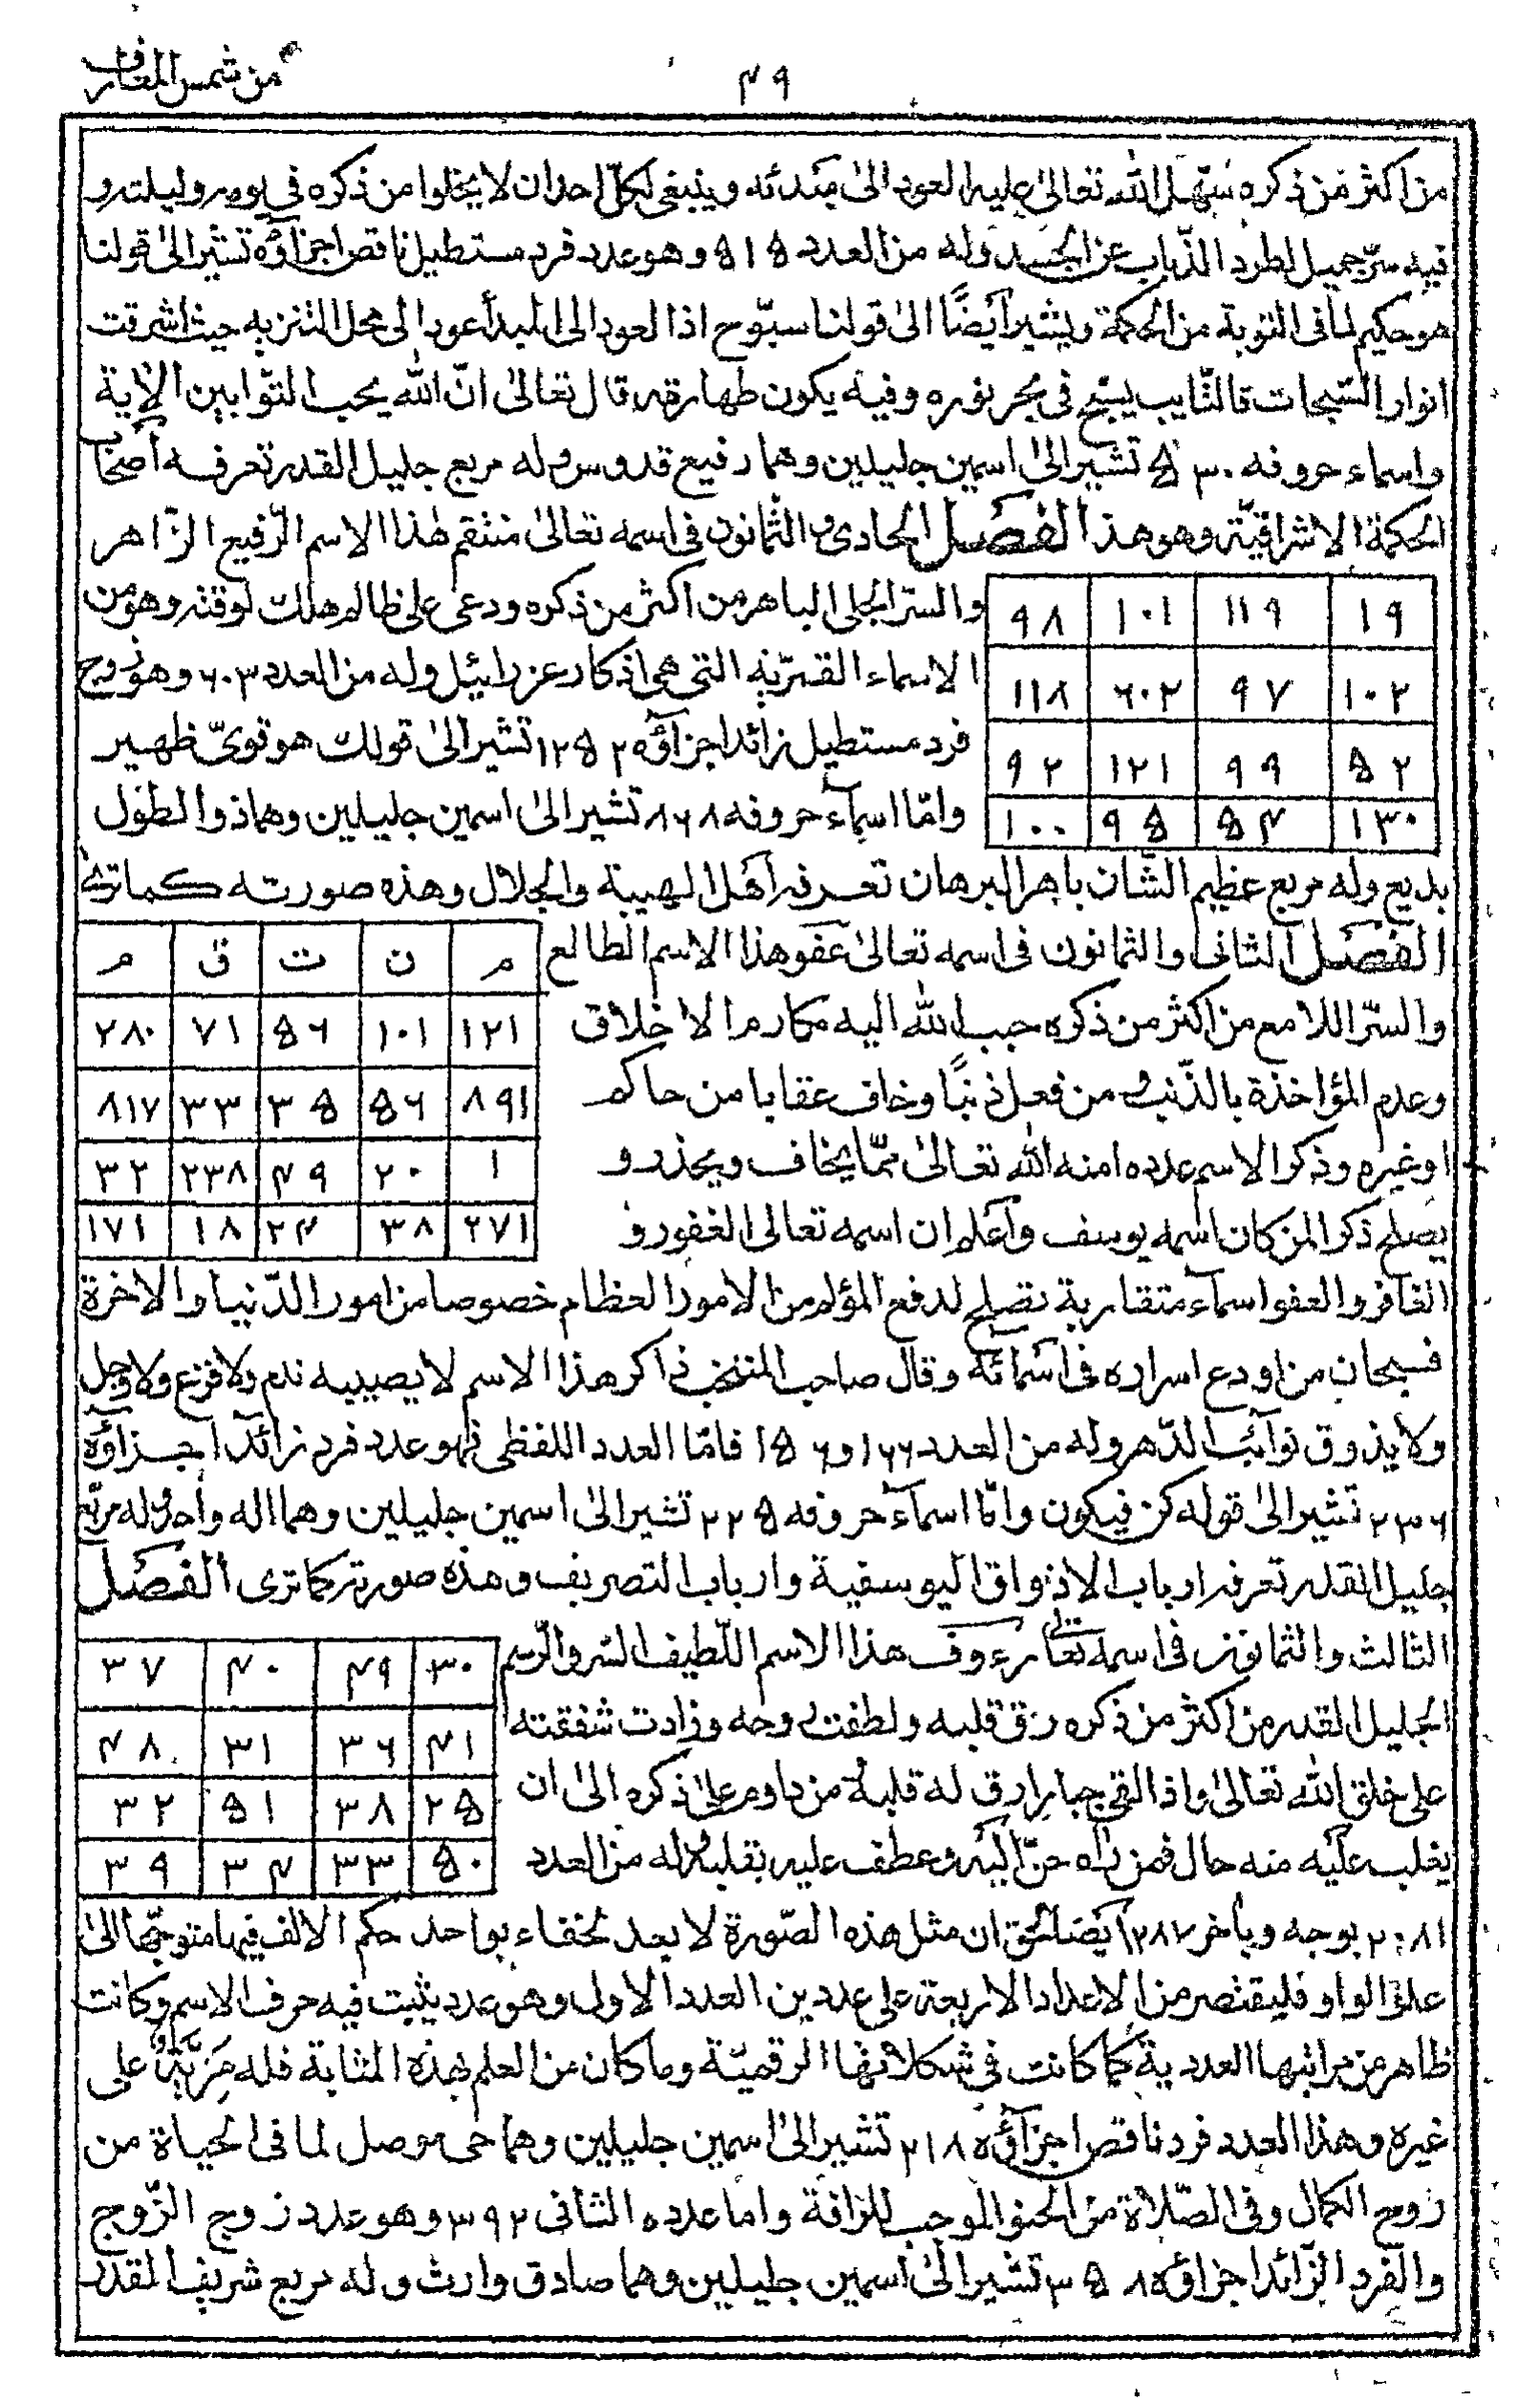 من شمس المعارف
٤٩
من اكثر من ذكره سهّل الله تعالىٰ عليه العود الىٰ مبدئه وينبغى لكلّ احد ان لا يخلوا من ذكره فى يومه وليلته و
فيه سرّ جميل لطرد الذّباب عن الجسد وله من العدد ٥١٥ وهو عدد فرد مستطيل ناقص اجزاؤه تشير الىٰ قولنا
هو حكيم لما فى التوبة من الحكمة ويشير أيضًا الىٰ قولنا سبّوح اذا العود الى المبدأ عود الى محل التنزيه حيث اشرقت
انوار السّبحات فالتّايب يسبح فى بحر نوره وفيه يكون طهارته قال تعالىٰ انّ الله يحب التوّابين الآية
واسماء حروفه ٥٣٠ تشير الىٰ اسمين جليلين وهما رفيع قدوس وله مربع جليل القدر تعرفه أصحاب
الحكمة الاشراقيّة وهو هذا الفصل الحادى والثمانون فى اسمه تعالىٰ منتقم هٰذا الاسم الرّفيع الزّاهر
والسرّ الجلى الباهر من اكثر من ذكره ودعى على ظالم هلك لوقته وهو من
الاسماء القهريّة التى هى اذكار عزرائيل وله من العدد ٦٠٣ وهو زوج
فرد مستطيل زائد اجزاؤه ١٢٥٢ تشير الىٰ قولك هو قوىّ ظهير
وامّا اسمآء حروفه ٨٦٨ تشير الىٰ اسمين جليلين وهما ذو الطول
١٩ ١١٩ ١٠١ ٩٨
١٠٢ ٩٧ ٦٠٢ ١١٨
٥٢ ٩٩ ١٢١ ٩٢
١٣٠ ٥٤ ٩٥ ١٠٠
بديع وله مربع عظيم الشّان باهر البرهان تعرفه أهل الهيبة والجلال وهذه صورته كما ترىٰ
الفصل الثانى والثمانون فى اسمه تعالىٰ عفو هذا الاسم الطالع
والسرّ اللامع من اكثر من ذكره حبب الله اليه مكارم الاخلاق
وعدم المؤاخذة بالذّنب ومن فعل ذنبًا وخاف عقابا من حاكم
او غيره وذكر الاسم عدده امنه الله تعالىٰ ممّا يخاف ويحذر و
يصلح ذكر المن كان اسمه يوسف وأعلم ان اسمه تعالى الغفور و
م ن ت ق م
١٢١ ١٠١ ٥٦ ٧١ ٢٨٠
٨٩١ ٥٦ ٣٥ ٣٣ ٨١٧
١ ٢٠ ٤٩ ٢٣٨ ٣٢
٢٧١ ٣٨ ٢٤ ١٨ ١٧١
الغافر والعفو اسمآء متقاربة تصلح لدفع المؤلم من الامور العظام خصوصا من امور الدّنيا والاخرة
فسبحان من اودع اسراره فى اسمائه وقال صاحب المنتخب ذاكر هذا الاسم لا يصيبه ندم ولا فزع ولا وجل
ولا يذوق نوآئب الدّهر وله من العدد ١٦٦ و١٥٦ فامّا العدد اللفظى فهو عدد فرد زائد اجزاؤه
٢٣٦ تشير الىٰ قوله كن فيكون وامّا اسمآء حروفه ٢٢٥ تشير الىٰ اسمين جليلين وهما اله واحد وله مربّع
جليل القدر تعرفه ارباب الاذواق اليوسفية وارباب التصريف وهذه صورته كما ترى الفصل
الثالث والثمانون فى اسمه تعالىٰ رءوف هذا الاسم اللّطيف السّر والرّسم
الجليل القدر من اكثر من ذكره رق قلبه ولطفت روحه وزادت شفقته
على خلق الله تعالىٰ واذا لقى جبارا رق له قلبه من داوم علىٰ ذكره الىٰ ان
يغلب عليه منه حال فمن رآه حنّ اليه وعطف عليه بقلبه وله من العدد
٣٠ ٤٩ ٤٠ ٣٧
٤١ ٣٦ ٣١ ٤٨
٢٥ ٣٨ ٥١ ٣٢
٥٠ ٣٣ ٣٤ ٣٩
٢٠٨١ بوجه وبآخر ٢٨٧ أيضا لحق ان مثل هذه الصّورة لا بعد لخفاء بواحد حكم الالف فيها متوجّها الىٰ
علوّ الواو فليقتصر من الاعداد الاربعة على عددين العدد الاولى وهو عدد يثبت فيه حرف الاسم وكانت
ظاهر من مراتبها العددية كما كانت فى شكلاتها الرقميّة وما كان من العلم بهذه المثابة فله مزيّة على
غيره وهذا العدد فرد ناقص اجزاؤه ٢١٨ تشير الىٰ اسمين جليلين وهما حى موصل لما فى الحياة من
زوح الكمال وفى الصّلاة من الحنو الموجب للرافة واما عدده الثانى ٣٩٢ وهو عدد زوج الزّوج
والفرد الزّائد اجزاؤه ٣٥٨ تشير الىٰ اسمين جليلين وهما صادق وارث وله مربع شريف المقدر